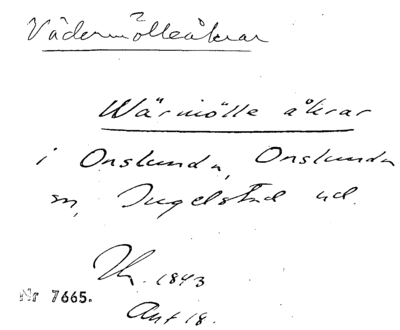 Vädermölleåkrar
Wärmölle åkrar
i Onslunda, Onslunda
sn, Ingelstad hd.
1843
Nr 7665.
Akt 18.